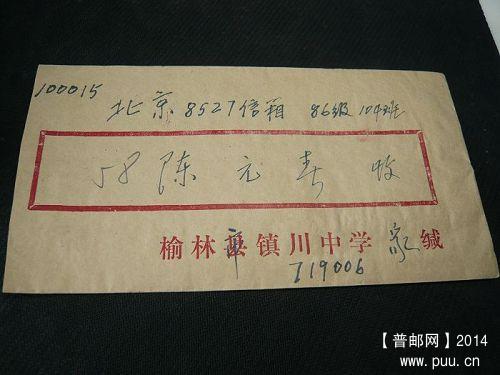 100015
北京 8527信箱 86级 104班
58 陈元春 收
榆林县镇川中学 家 缄
719006
【普邮网】2014
www.puu.cn